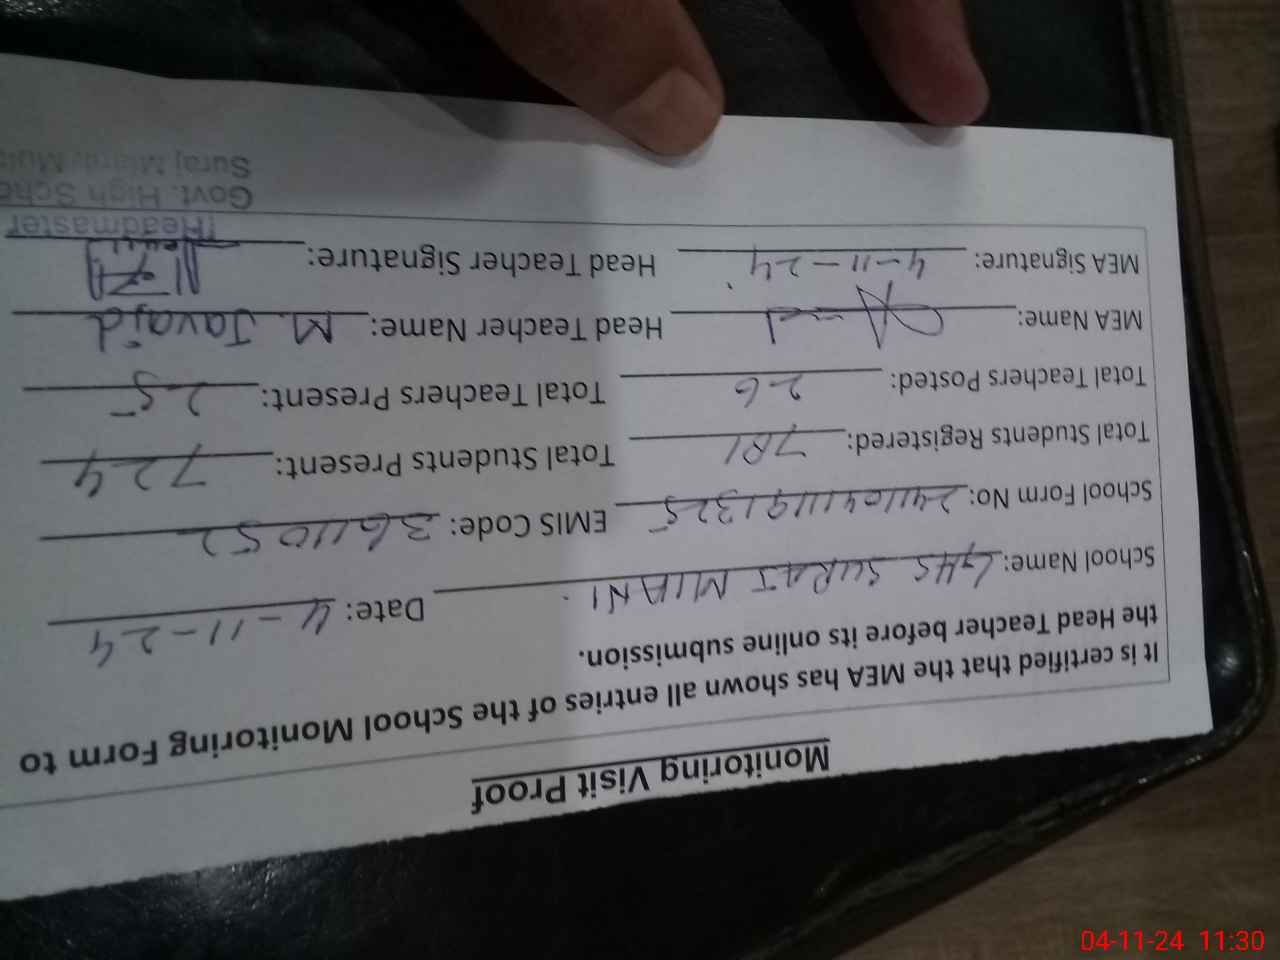 Monitoring Visit Proof
It is certified that the MEA has shown all entries of the School Monitoring Form to
the Head Teacher before its online submission.
School Name: GHS SURAJ MIANI. Date: 4-11-24
School Form No: EMIS Code: 36110052
Total Students Registered: 781 Total Students Present: 724
Total Teachers Posted: 26 Total Teachers Present: 25
MEA Name: Head Teacher Name: M. Javaid
MEA Signature: 4-11-24 Head Teacher Signature:
Headmaster
Govt. High
Suraj Miani
04-11-24 11:30